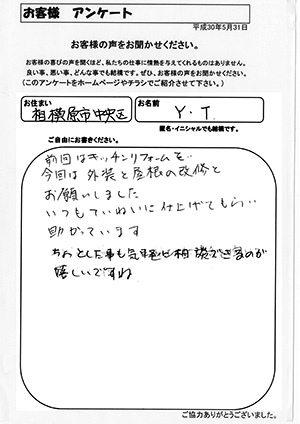 お客様 アンケート
平成30年5月31日
お客様の声をお聞かせください。
お客様の喜びの声を聞くほど、私たちの仕事に情熱を与えてくれるものはありません。
良い事、悪い事、どんな事でも結構です。ぜひ、お客様の感想をお聞かせください。
(このアンケートをホームページやチラシでご紹介させて下さい。)
お住まい
お名前
相模原市中央区
Y・T.
匿名・イニシャルでも結構です。
ご自由にお書きください。
前回はキッチンリフォームを
今回は外装と屋根の改修と
お願いしました
いつもていねいに仕上げてもらい
助かっています
ちょっとした事も気軽に相談できるのが
嬉しいですね
ご協力ありがとうございました。